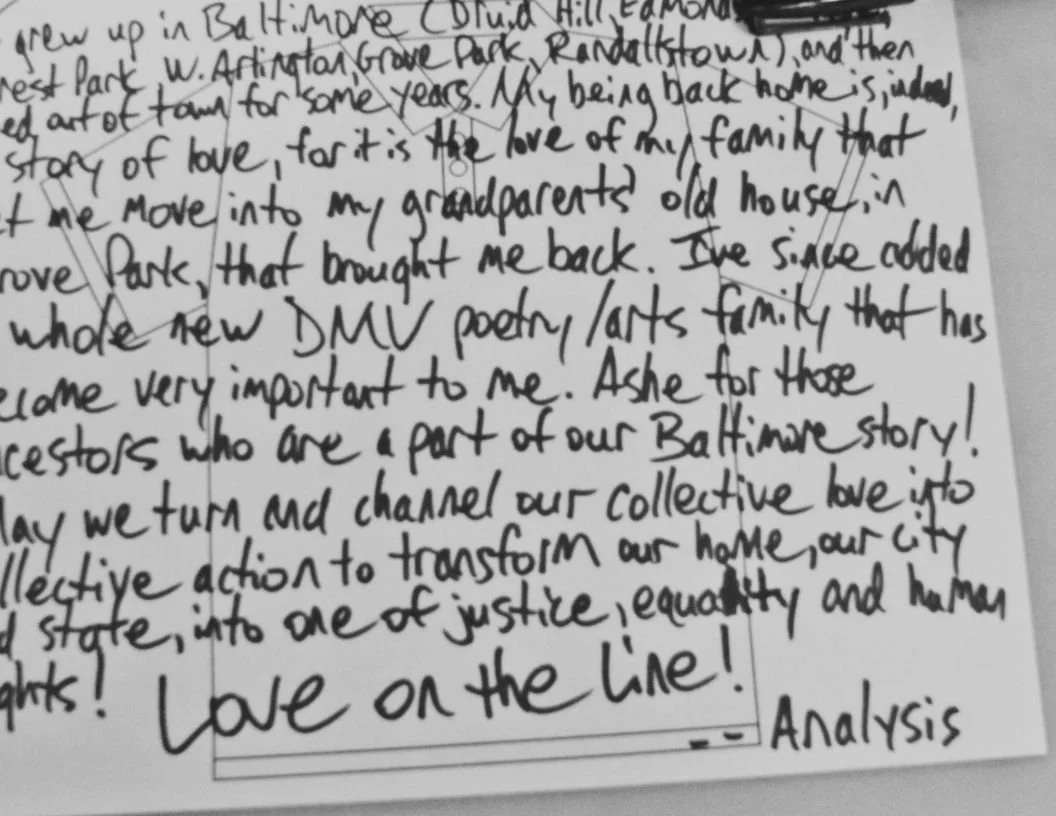 grew up in Baltimore (Druid Hill, Edmond
rest Park, W. Arlington, Grove Park, Randallstown), and then
ed out of town for some years. My being back home is, indeed,
story of love, for it is the love of my family that
et me move into my grandparents' old house, in
rove Park, that brought me back. I've since added
whole new DMV poetry/arts family that has
ecome very important to me. Ashe for those
cestors who are a part of our Baltimore story!
lay we turn and channel our collective love into
llective action to transform our home, our city
d state, into one of justice, equality and human
ghts! Love on the Line!
-- Analysis